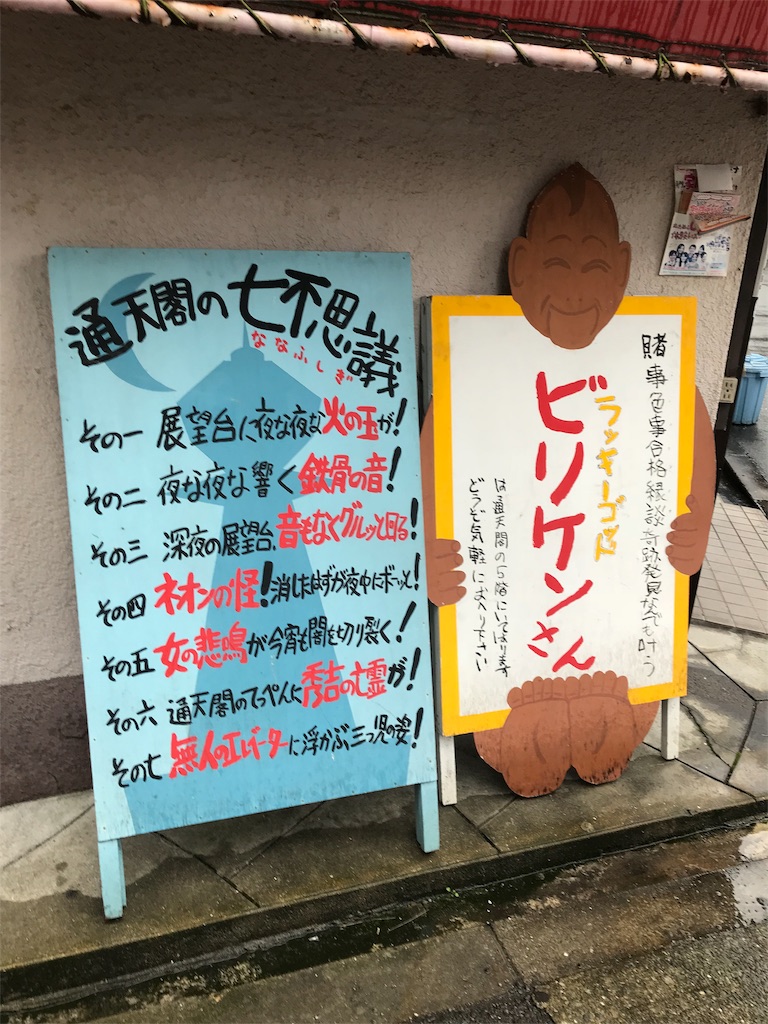 通天閣の七不思議
ななふしぎ
その一 展望台に夜な夜な火の玉が!
その二 夜な夜な響く鉄骨の音!
その三 深夜の展望台、音もなくグルッと回る!
その四 ネオンの怪!消したはずが夜中にボーッと!
その五 女の悲鳴が今宵も闇を切り裂く!
その六 通天閣のてっぺんに秀吉の亡霊が!
その七 無人のエレベーターに浮かぶ三つ児の姿!
賭事色事合格縁談奇跡発見なんでも叶う
ラッキーゴッド
ビリケンさん
は通天閣の5階にいてはります
どうぞ気軽におへり下さい